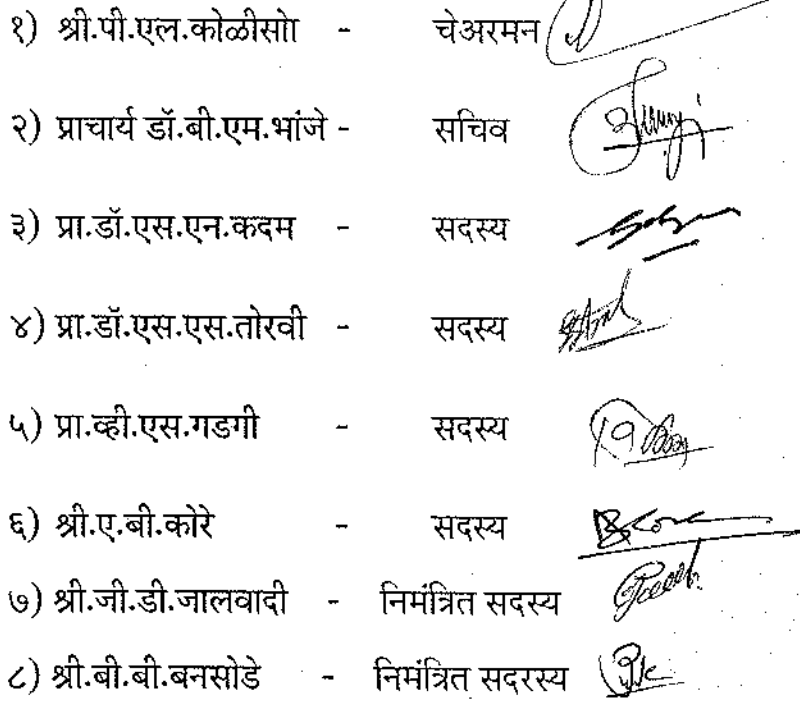 १) श्री.पी.एल.कोळीसोा - चेअरमन
२) प्राचार्य डॉ.बी.एम.भांजे - सचिव
३) प्रा.डॉ.एस.एन.कदम - सदस्य
४) प्रा.डॉ.एस.एस.तोरवी - सदस्य
५) प्रा.व्ही.एस.गडगी - सदस्य
६) श्री.ए.बी.कोरे - सदस्य
७) श्री.जी.डी.जालवादी - निमंत्रित सदस्य
८) श्री.बी.बी.बनसोडे - निमंत्रित सदरस्य